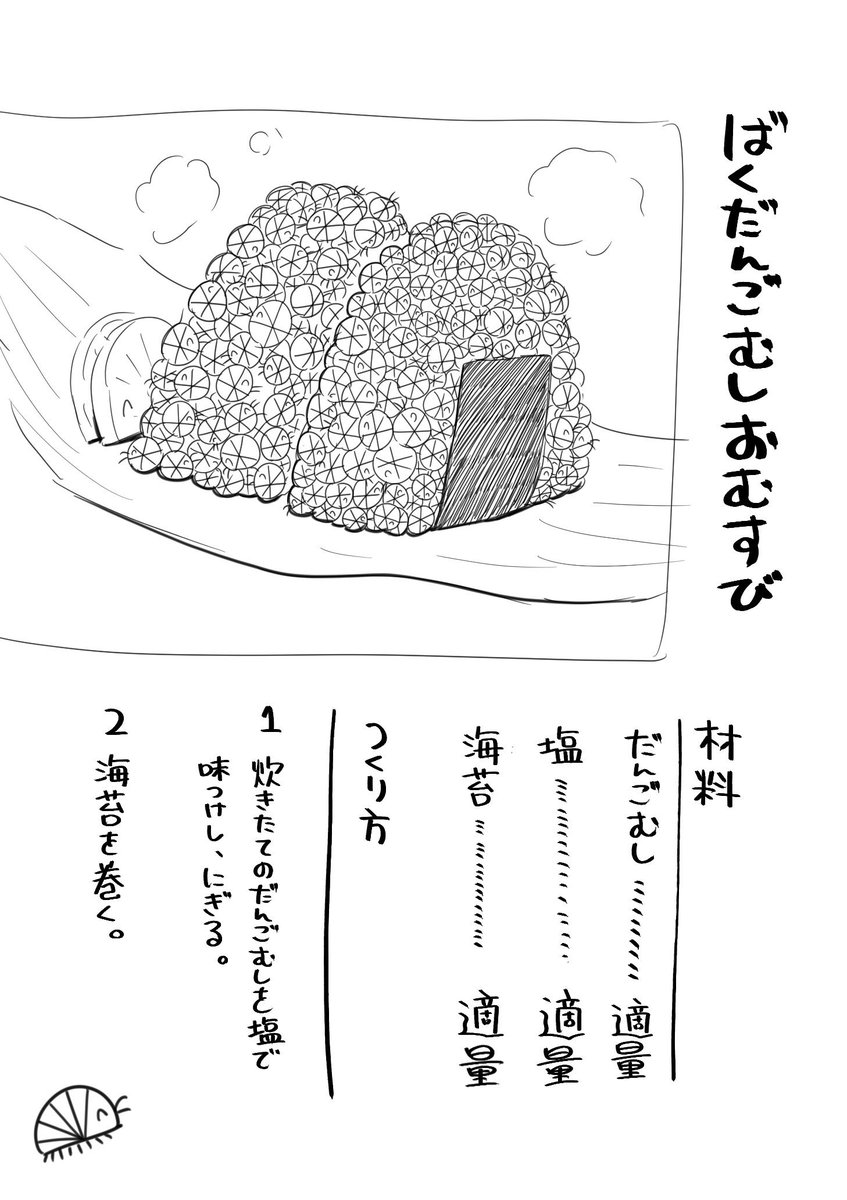 ばくだんごむしおむすび
材料
だんごむし………適量
塩………適量
海苔………適量
つくり方
1 炊きたてのだんごむしを塩で
味つけし、にぎる。
2 海苔を巻く。